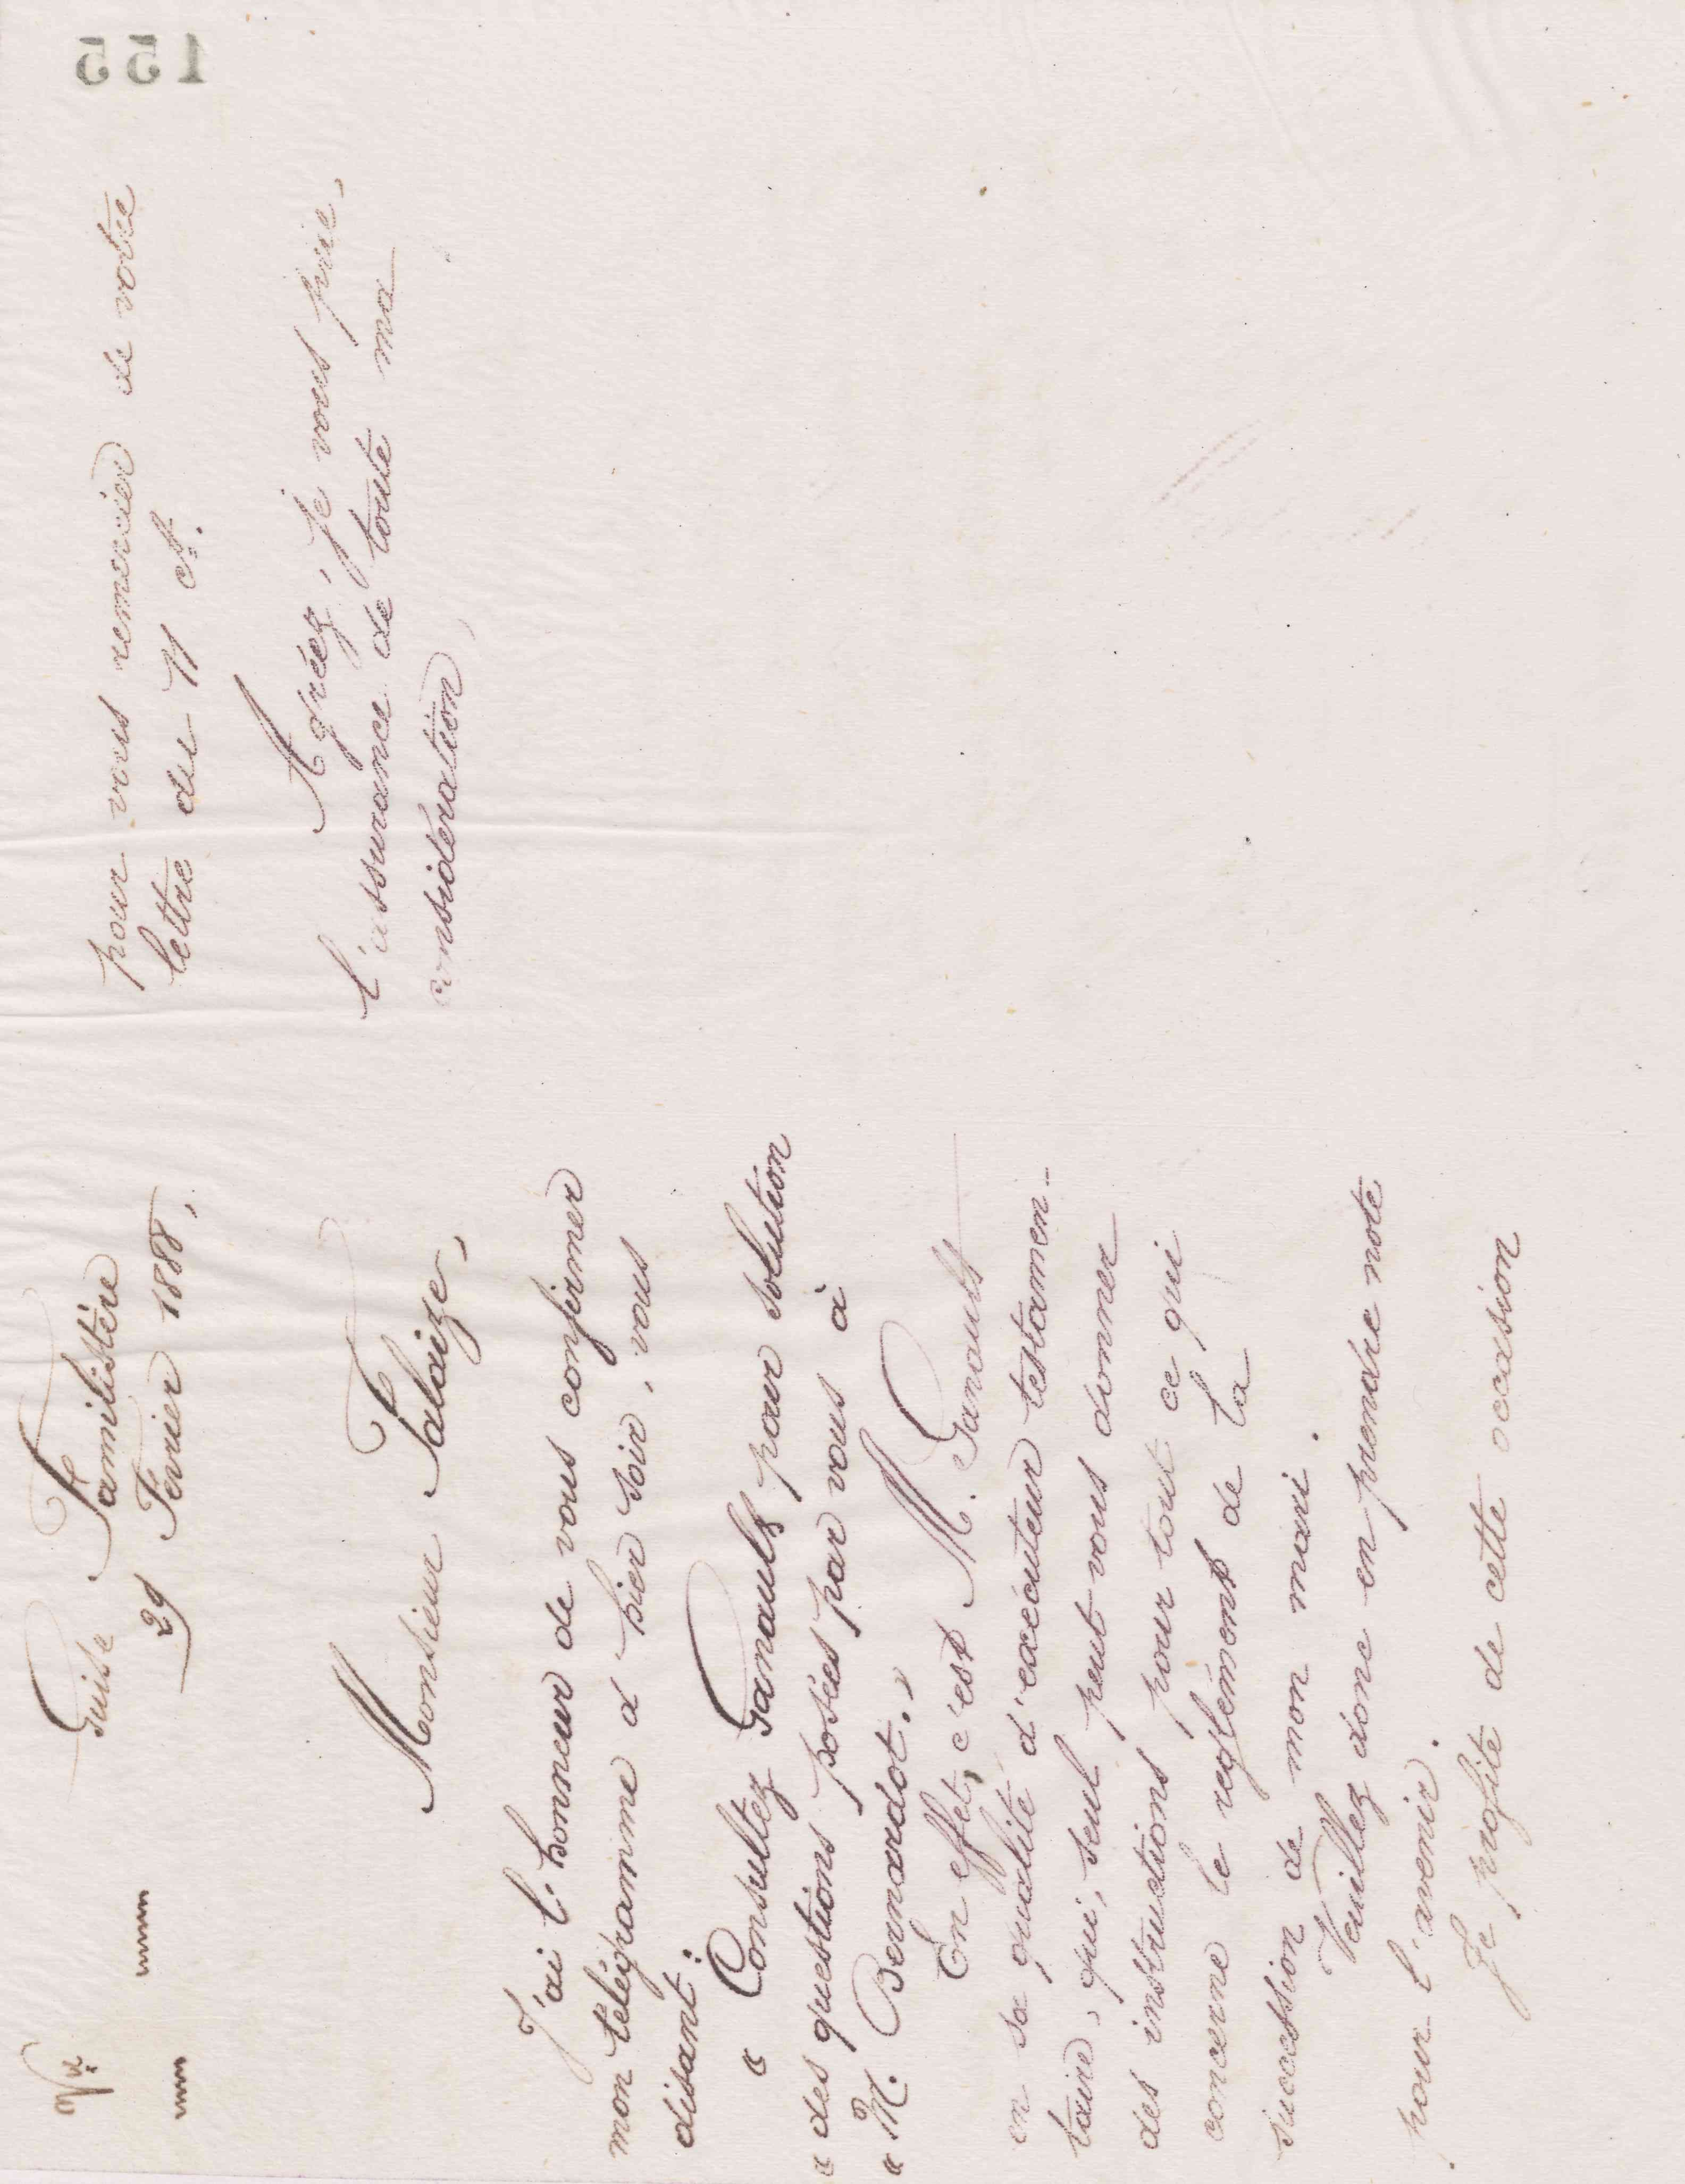 Vve
Guise Familistère
29 Fevrier 1888.
Monsieur Falaize,
J'ai l'honneur de vous confirmer
mon télégramme d'hier soir, vous
disant :
« Consultez Ganault pour solution
« des questions posées par vous à
« M. Bernardot. »
En effet, c'est M. Ganault
en sa qualité d'exécuteur testamen-
taire, qui, seul peut vous donner
des instructions pour tout ce qui
concerne le reglément de la
succession de mon mari.
Veuillez donc en prendre note
pour l'avenir.
Je profite de cette occasion
155
pour vous remercier de votre
lettre du 11 ct.
Agréez, je vous prie,
l'assurance de toute ma
considération,